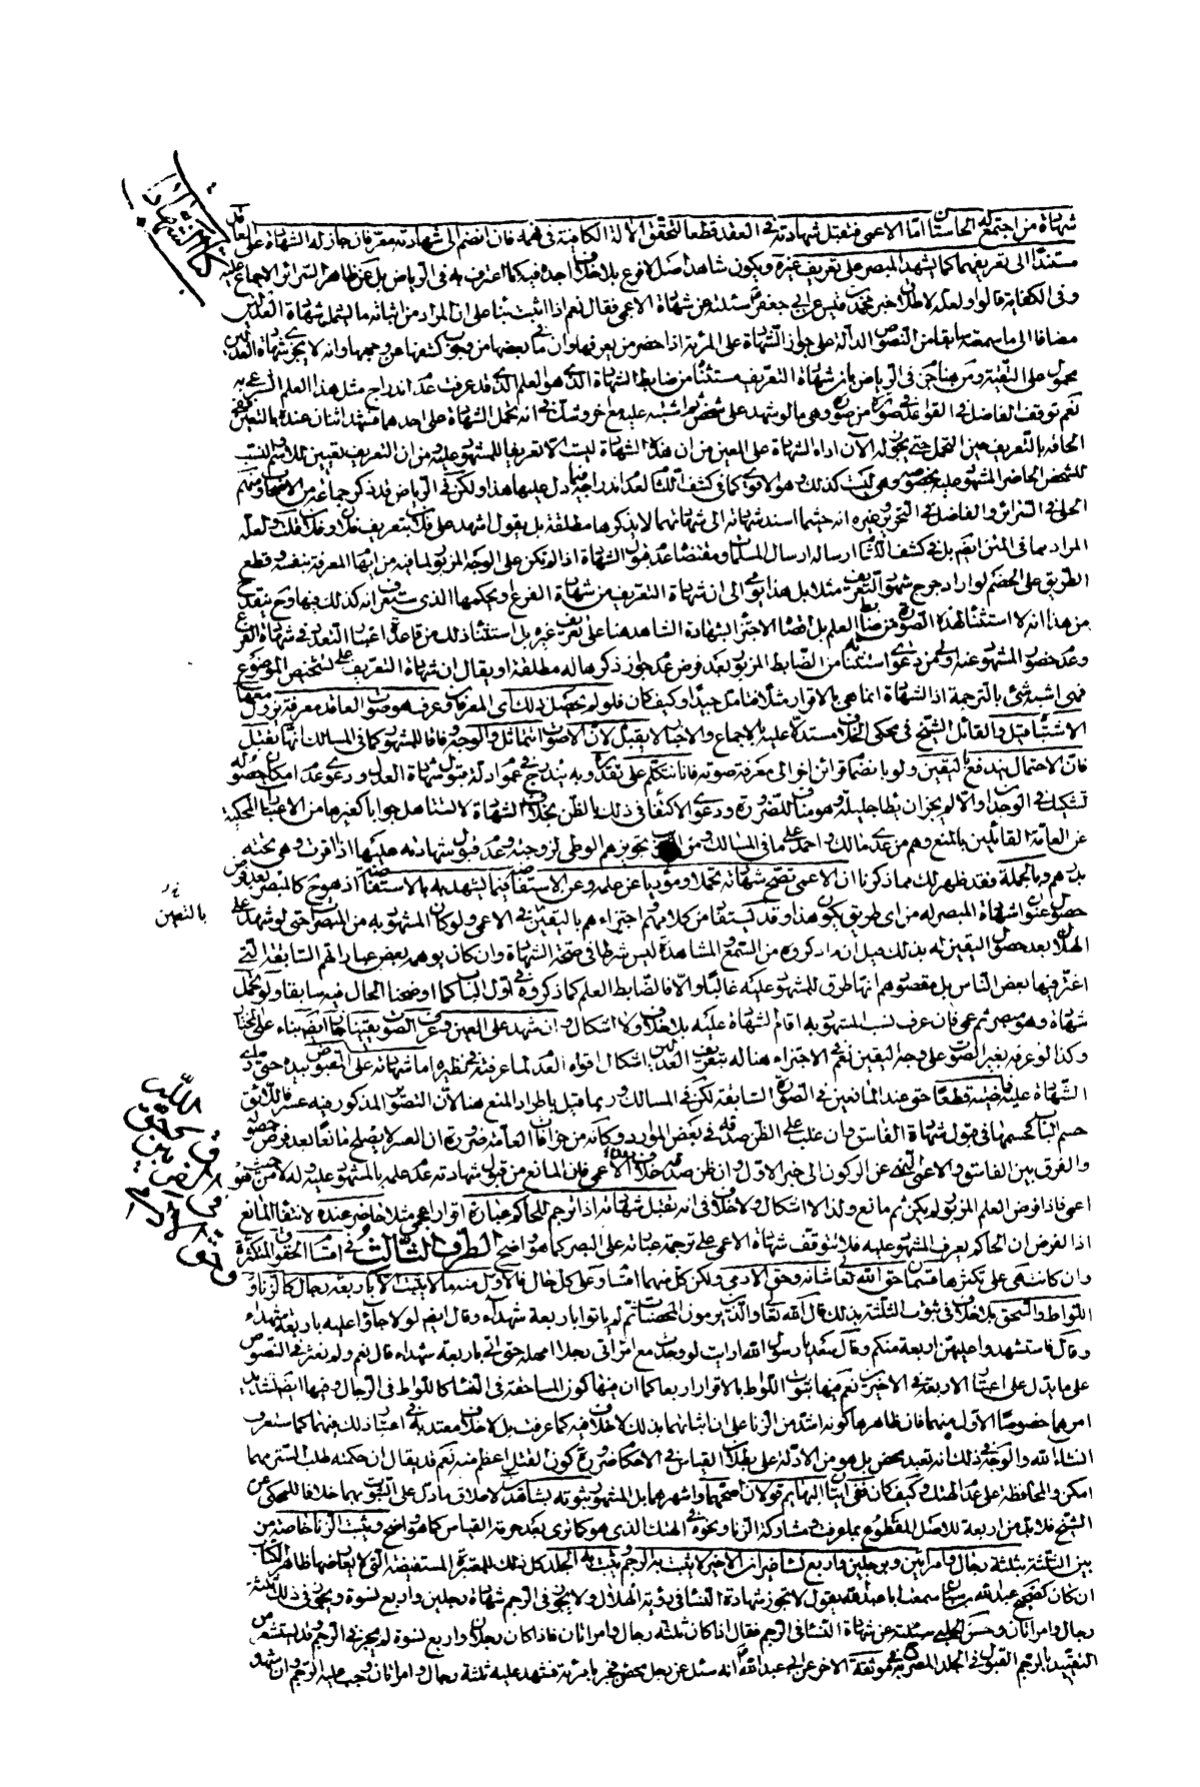 كتاب الشهادات
شهادة من اجتمع له الحاستان اما الاعمى فتقبل شهادته في العقد قطعا لتحقق الالة الكافية في فهمه فان انضم الى شهادته معرفان جاز له الشهادة على العاقد
مستندا الى تعريفهما كما يشهد المبصر على تعريف غيره ويكون شاهد اصل لا فرع بلا خلاف اجده فيه كما اعترف به في الرياض بل عن ظاهر السرائر الاجماع عليه
وفي الكفاية قالوا ولعله لاطلاق خبر محمد بن قيس عن ابي جعفر سئلته عن شهادة الاعمى فقال نعم اذا اثبت بناء على ان المراد من اثباته ما يشمل شهادة العدلين
مضافا الى ما سمعته سابقا من النصوص الدالة على جواز الشهادة على المرئة اذا حضر من يعرفها وان ما في بعضها من وجوب كشفها عن وجهها وانه لا يجزي شهادة العدلين
محمول على التقية ومن هنا في الرياض بان شهادة التعريف مستثناة من ضابط الشهادة الذي هو العلم الذي قد عرفت عدم اندراج مثل هذا العلم الشرعي به
نعم توقف الفاضل في القواعد في صورة من صوره وهي ما لو شهد على شخص ثم اشتبه عليه مع اخر وقال في انه تحمل الشهادة على احدهما فشهد اثنان عنده بالتعيين
الحاقه بالتعريف حين التحمل حتى يجوز له الآن اداء الشهادة على العين من ان هذه الشهادة ليست الا تعريفا للمشهود عليه ومن ان التعريف تعيين للاسم والنسب
للشخص الحاضر المشهود عليه بخصوصه وهي ليست كذلك وهو الاقوى كما في كشف اللثام لعدم اندراجه فيما دل عليها هذا ولكن في الرياض قد ذكر جماعة من الاصحاب ومنهم
الحلي في السرائر والفاضل في التحرير وغيره انه حيثما اسند شهادته الى شهادتهما لا يذكرها مطلقة بل يقول اشهد على فلان بتعريف فلان وفلان قلت ولعله
المراد مما في المتن ايضا بل في كشف اللثام ارساله ارسال المسلمات ومقتضاه عدم قبول الشهادة اذا لم تكن على الوجه المزبور لما فيه من ايهام المعرفة بنفسه وقطع
الطريق على الخصم لو اراد جرح شهود التعريف مثلا بل هذا يومي الى ان شهادة التعريف من شهادة الفرع وبحكمها الذي ستعرف انه كذلك فيها وح ينقدح
من هذا انه لا استثناء لهذه الصورة من ضابط العلم بل اقصاه الاجتزاء بشهادة الشاهد هنا على تعريف غيره بل استثناء ذلك من قاعدة اعتبار التعدد في شهادة الفرع
وعدم حضور المشهود عنده اولى من دعوى استثنائه من الضابط المزبور بعد فرض عدم جواز ذكرها له مطلقة او يقال ان شهادة التعريف على تشخيص الموضوع
فهي اشبه شئ بالترجمة اذ الشهادة انما هي بالاقرار مثلا فتامل جيدا وكيف كان فلو لم يحصل ذلك اي المعرفان وعرف هو صوت العاقد معرفة يزول معها
الاشتباه قيل والقائل الشيخ في محكي الخلاف مستدلا عليه بالاجماع والاخبار لا يقبل لان الاصوات تتماثل والوجه وفاقا للمشهور كما في المسالك انها تقبل
فان الاحتمال يندفع باليقين ولو بانضمام قرائن اخر الى معرفة صوته فانا نتكلم على تقديره وبه يندرج في عموم ادلة قبول شهادة العدل ودعوى عدم امكان حصوله
تشكيك في الوجدان والا لم يجز ان يطأ حليلته وهو مناف للضرورة ودعوى الاكتفاء في ذلك بالظن بخلاف الشهادة لا تستاهل جوابا كغيرها من الاعتبارات المحكية
عن العامة القائلين بالمنع وهم من عدى مالك واحمد على ما في المسالك ومن تجويزهم الوطي لزوجته وعدم قبول شهادته عليها اذا اقرت وهي تحته
بل هم وبالجملة فقد ظهر لك مما ذكرنا ان الاعمى تصح شهادته تحملا ومؤديا عن علمه وعن الاستفاضة فيما يشهد به بالاستفاضة اذ هو ح كالمبصر بعد فرض
حصول عنوان الشهادة المبصر له من اي طريق يكون هذا وقد يستفاد من كلامهم اجتزاءهم باليقين في الاعمى ولو كان المشهود به من المبصرات حتى لو شهد على
الهلال بعد حصول اليقين له بذلك قبل ان ما ذكروه من السمع والمشاهدة ليس شرطا في صحة الشهادة وان كان يوهمه بعض عباراتهم السابقة التي
اغتر فيها بعض الناس بل مقصودهم انها طرق للمشهود عليه غالبا والا فالضابط العلم كما ذكروه في اول الباب كما اوضحنا الحال فيه سابقا ولو تحمل
شهادة وهو مبصر ثم عمي فان عرف نسب المشهود به اقام الشهادة عليه بلا خلاف ولا اشكال وان شهد على العين وعرف الصوت يقينا جاز ايضا بناء على المختار
وكذا لو عرفه بغير الصوت على وجه اليقين نعم في الاجتزاء هنا له بتعريف العدلين اشكال اقواه العدم لما عرفته في نظيره اما شهادته على المقبوض بيده حتى يؤدي
الشهادة عليه فماضية قطعا حتى عند المانعين في الصورة السابقة لكن في المسالك ربما قيل باطراد المنع هنا لان التصوير المذكور فيه عسر فاللائق
حسم الباب كحسمها في قبول شهادة الفاسق وان غلب على الظن صدقه في بعض الموارد وكانه من خرافات العامة ضرورة ان العسر لا يصلح مانعا بعد فرض حصوله
والفرق بين الفاسق والاعمى النهي عن الركون الى خبر الاول وان ظن صدقه بخلاف الاعمى فان المانع من قبول شهادته عدم علمه بالمشهود عليه وله لا من حيث هو
اعمى فاذا فرض العلم المزبور لم يكن ثم مانع ولذا لا اشكال ولا خلاف في انه تقبل شهادته اذا ترجم للحاكم عبارة اقرار اعجمي مثلا حاضر عنده لانتفاء المانع
اذ الفرض ان الحاكم يعرف المشهود عليه فلا تتوقف شهادة الاعمى على ترجمة عبارته على البصر كما هو واضح الطرف الثالث في اقسام الحقوق المتكثرة
وان كانت هي على تكثرها قسمان حق الله تعالى شانه وحق الادمي ولكن كل منهما اقسام وعلى كل حال فالاول منه ما لا يثبت الا باربعة رجال كالزنا و
اللواط والسحق بلا خلاف في ثبوت الثلثة بذلك قال الله تعالى والذين يرمون المحصنات ثم لم ياتوا باربعة شهداء وقال ايضا لولا جاؤا عليه باربعة شهداء
وقال فاستشهدوا عليهن اربعة منكم وقال سعد يا رسول الله ارايت لو وجدت مع امراتي رجلا امهله حتى اتي باربعة شهداء قال نعم ولم نعثر في النصوص
على ما يدل على اعتبار الاربعة في الاخيرين نعم فيها ثبوت اللواط بالاقرار اربعا كما ان فيها كون المساحقة في النساء كاللواط في الرجال وفيها ايضا تشديد
امرهما خصوصا الاول منهما فان ظاهرها كونه اشد من الزنا على ان اثباتهما بذلك لا خلاف فيه كما عرفت بل لا خلاف معتد به في اعتبار ذلك فيهما كما ستعرف
انشاء الله والوجه في ذلك انه تعبد محض بل هو من الادلة على بطلان القياس في الاحكام ضرورة كون القتل اعظم منه نعم قد يقال ان حكمته طلب الستر مهما
امكن والمحافظة على عدم الهتك وكيف كان ففي اتيان البهائم قولان اصحهما واشهرهما بل المشهور ثبوته بشاهدين لاطلاق ما دل على الثبوت بهما خلافا للمحكي عن
الشيخ فلابد من اربعة للاصل المقطوع بما عرفت ومشاركة الزنا ونحوه في الهتك الذي هو كما ترى بعد حرمة القياس كما هو واضح ويثبت الزنا خاصة من
بين الثلثة بثلثة رجال وامراتين وبرجلين واربع نساء غير ان الاخير لا يثبت به الرجم ويثبت به الجلد كل ذلك للمعتبرة المستفيضة التي لا يعارضها ظاهر الكتاب
ان كان كصحيح عبد الله بن سنان سمعت ابا عبد الله يقول لا تجوز شهادة النساء في رؤية الهلال ولا يجوز في الرجم شهادة رجلين واربع نسوة ويجوز في ذلك ثلثة
رجال وامراتان وحسن الحلبي سئلته عن شهادة النساء في الرجم فقال اذا كان ثلثة رجال وامراتان فاذا كان رجلان واربع نسوة لم يجز في الرجم وقد يستشعر من
التقييد بالرجم القبول في الجلد المصرح به في موثقه الاخر عن ابي عبد الله انه سئل عن رجل محصن فجر بامرئة فشهد عليه ثلثة رجال وامراتان وجب عليه الرجم وان شهد
بالتعيين